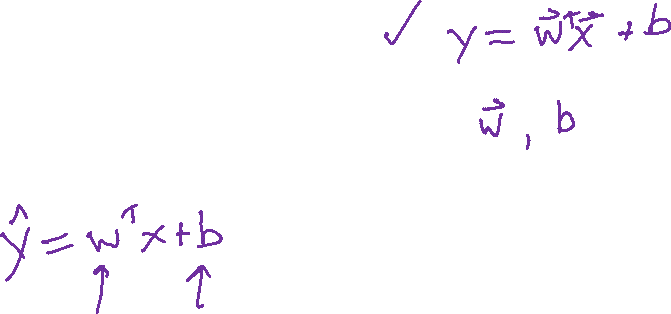 ✓ y = w⃗ᵀx⃗ + b
w⃗, b
ŷ = wᵀx + b
↑ ↑